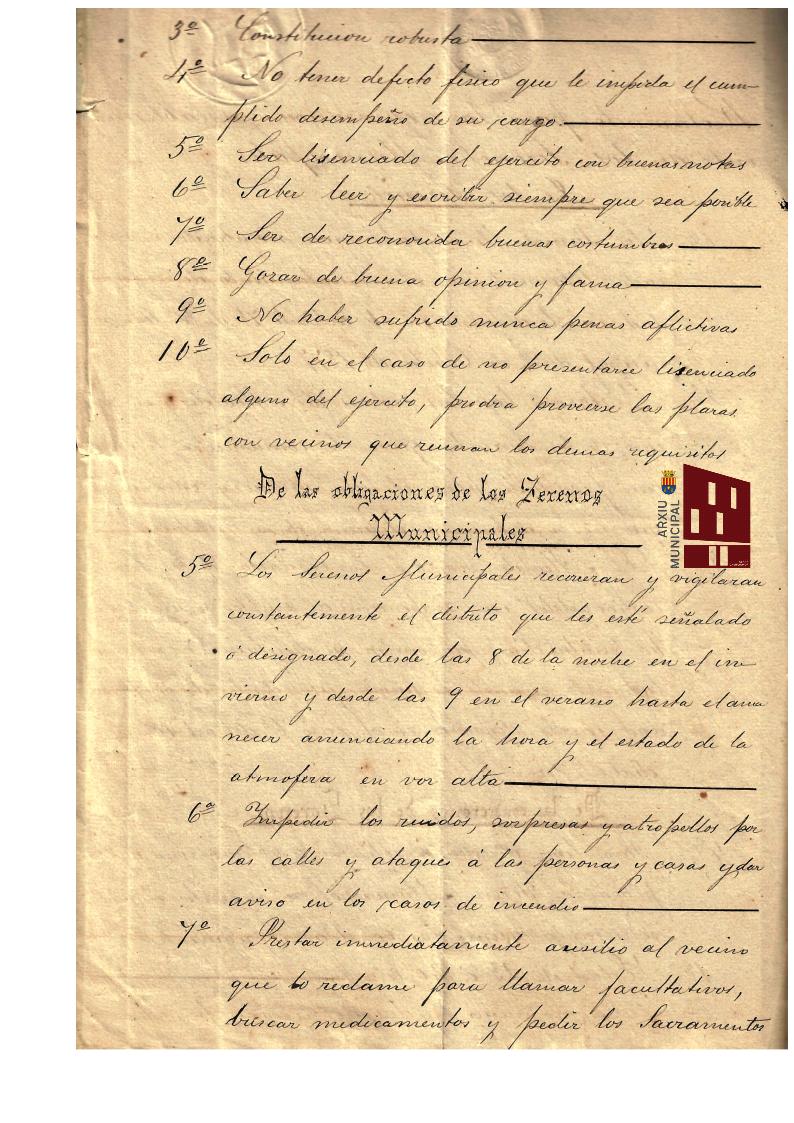 3º Constitucion robusta
4º No tener defecto fisico que le impida el cum-
plido desempeño de su cargo.
5º Ser lisenciado del ejercito con buenas notas
6º Saber leer y escribir siempre que sea posible
7º Ser de reconocida buenas costumbres
8º Gozar de buena opinion y fama
9º No haber sufrido nunca penas aflictivas
10º Solo en el caso de no presentarce lisenciado
alguno del ejercito, prodra proveerse las plazas
con vecinos que reunan los demas requisitos
De las obligaciones de los Serenos
Municipales
ARXIU
MUNICIPAL
5º Los Serenos Municipales recorreran y vigilaran
constantemente el distrito que les esté señalado
ó designado, desde las 8 de la noche en el in-
vierno y desde las 9 en el verano hasta el ama
necer anunciando la hora y el estado de la
atmofera en voz alta
6ª Impedir los ruidos, sorpresas y atropellos por
las calles y ataques á las personas y casas y dar
aviso en los casos de incendio
7º Prestar inmediatamente auxilio al vecino
que lo reclame para llamar facultativos,
buscar medicamentos y pedir los Sacramentos